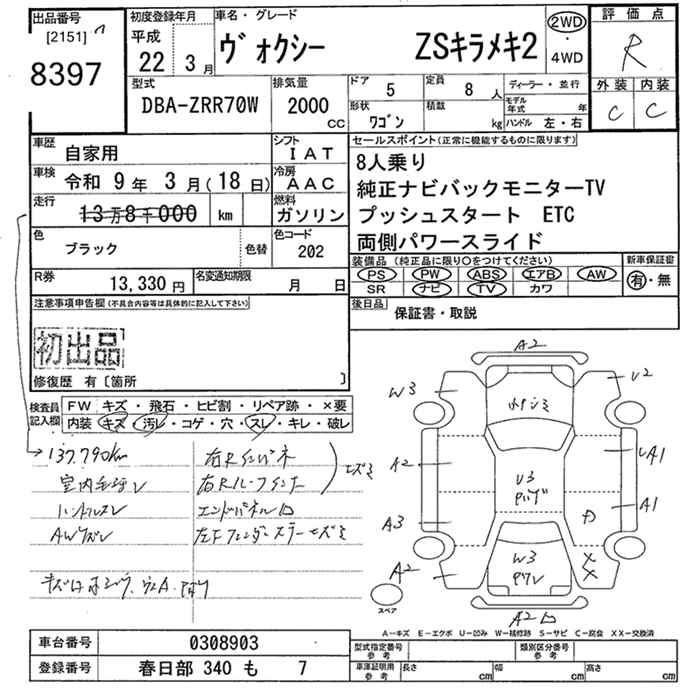 出品番号
[2151]
8397
初度登録年月
平成
22 3月
車名・グレード
ヴォクシー ZSキラメキ2
2WD
・
4WD
評価点
R
外装 内装
C C
型式
DBA-ZRR70W
排気量
2000
CC
ドア 5
定員 8 人
ディーラー・並行
形状 ワゴン
積載 kg
モデル年式 年
ハンドル 左・右
車歴 自家用
シフト IAT
車検 令和 9年 3月(18日)
冷房 AAC
走行 13万8千000 km
燃料 ガソリン
色 ブラック 色替
色コード 202
R券 13,330円
名変通知期限 月 日
セールスポイント(正常に機能するものに限ります)
8人乗り
純正ナビバックモニターTV
プッシュスタート ETC
両側パワースライド
装備品(純正品に限り○をつけてください)
PS PW ABS エアB AW
SR ナビ TV カワ
新車保証書
有・無
後日品 保証書・取説
注意事項申告欄(不具合内容等は具体的に記入して下さい)
初出品
修復歴 有〔箇所 〕
検査員記入欄
FW キズ・飛石・ヒビ割・リペア跡・×要
内装 キズ・汚レ・コゲ・穴・スレ・キレ・破レ
137,790km
室内
ハンドルスレ
AWキズレ
右Rインパネ
右Rルーフインナー
エンドパネルロ
左Fフェンダーステーキズミ
キズミ
A2
W3
U2
A2
U3
UA1
A1
A3
W3
A2
XX
A2
スペア
A―キズ E―エクボ U―凹み W―補修跡 S―サビ C―腐食 XX―交換済
車台番号 0308903
登録番号 春日部 340 も 7
型式指定番号 参考
類別区分番号 参考
車庫証明用 参考
長さ cm
幅 cm
高さ cm